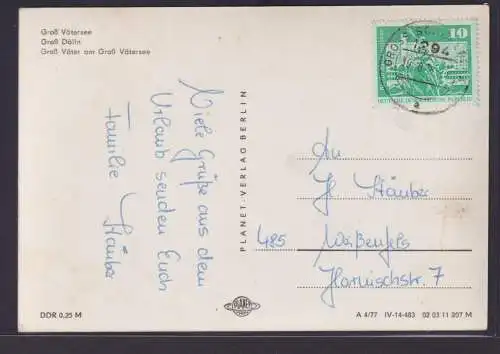 Groß Vätersee
Groß Dölln
Groß Väter am Groß Vätersee
Viele Grüße aus dem
Urlaub senden Euch
Familie Stäuber
PLANET-VERLAG BERLIN
10
DEUTSCHE DEMOKRATISCHE REPUBLIK
An
Stäuber
485 Weißenfels
Harnischstr. 7
PLANET
DDR 0,25 M
A 4/77 IV-14-483 02 03 11 207 M